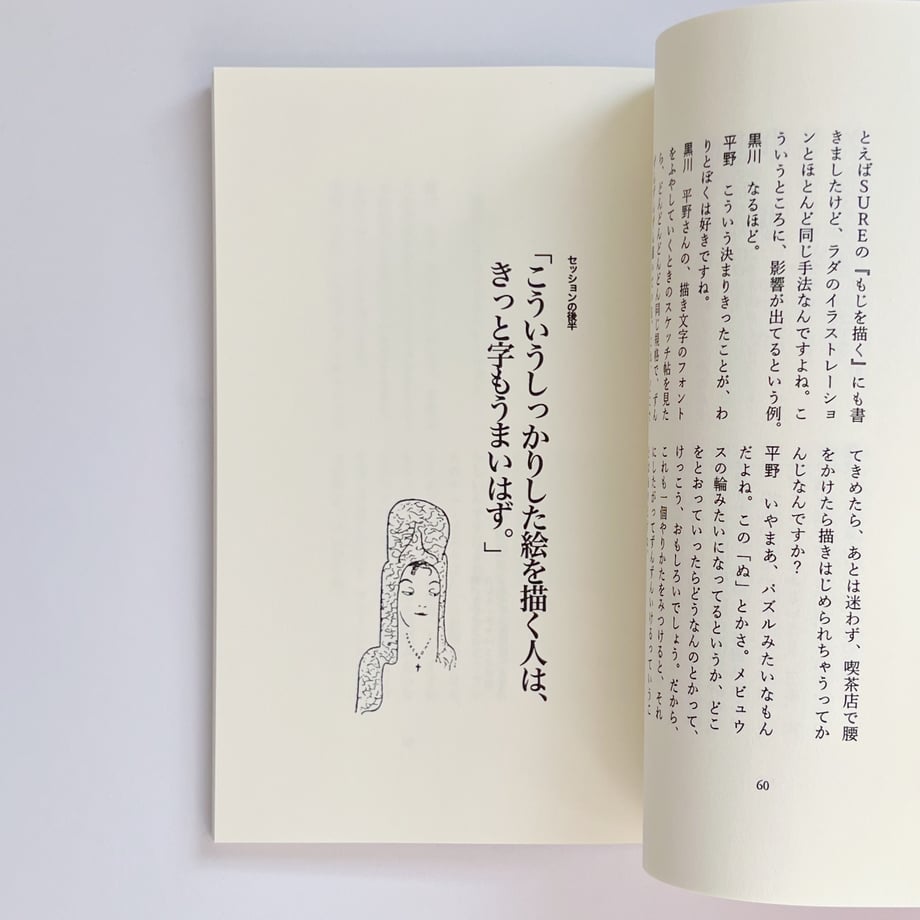 とえばＳＵＲＥの『もじを描く』にも書
きましたけど、ラダのイラストレーショ
ンとほとんど同じ手法なんですよね。こ
ういうところに、影響が出てるという例。
黒川　なるほど。
平野　こういう決まりきったことが、わ
りとぼくは好きですね。
黒川　平野さんの、描き文字のフォント
をふやしていくときのスケッチ帖を見た
ら、どんどんどんどん同じ規格で、ずん
てきめたら、あとは迷わず、喫茶店で腰
をかけたら描きはじめられちゃうってか
んじなんですか？
平野　いやまあ、パズルみたいなもん
だよね。この「ぬ」とかさ。メビュウ
スの輪みたいになってるというか、どこ
をとおっていったらどうなんのとかって、
けっこう、おもしろいでしょう。だから、
これも一個やりかたをみつけると、それ
にしたがってずんずんいけるっていうこ
60
セッションの後半
「こういうしっかりした絵を描く人は、
きっと字もうまいはず。」